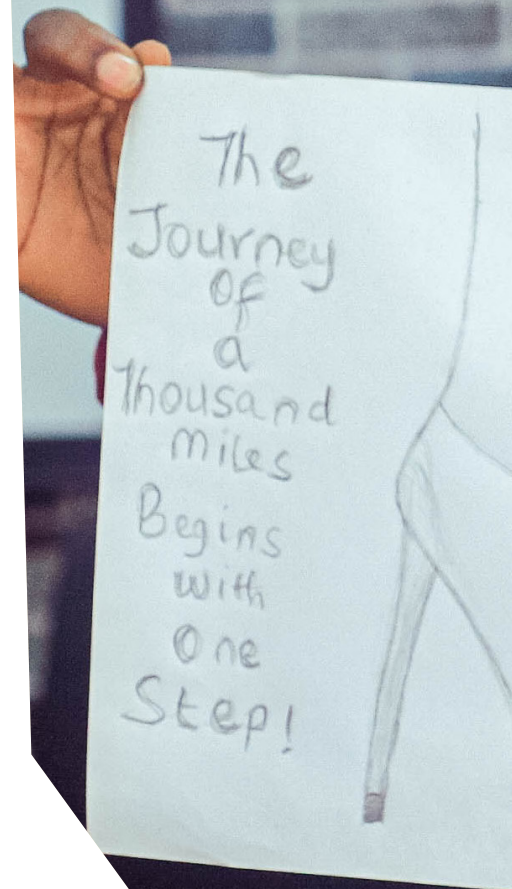 The
Journey
Of
a
Thousand
miles
Begins
with
One
Step!